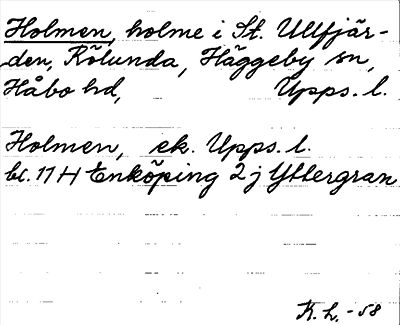 Holmen, holme i St. Ullfjär-
den, Kölunda, Häggeby sn,
Håbo hd, Upps. l.
Holmen, ek. Upps. l.
bl. 11 H Enköping 2 j Yttergran
K. L. -58